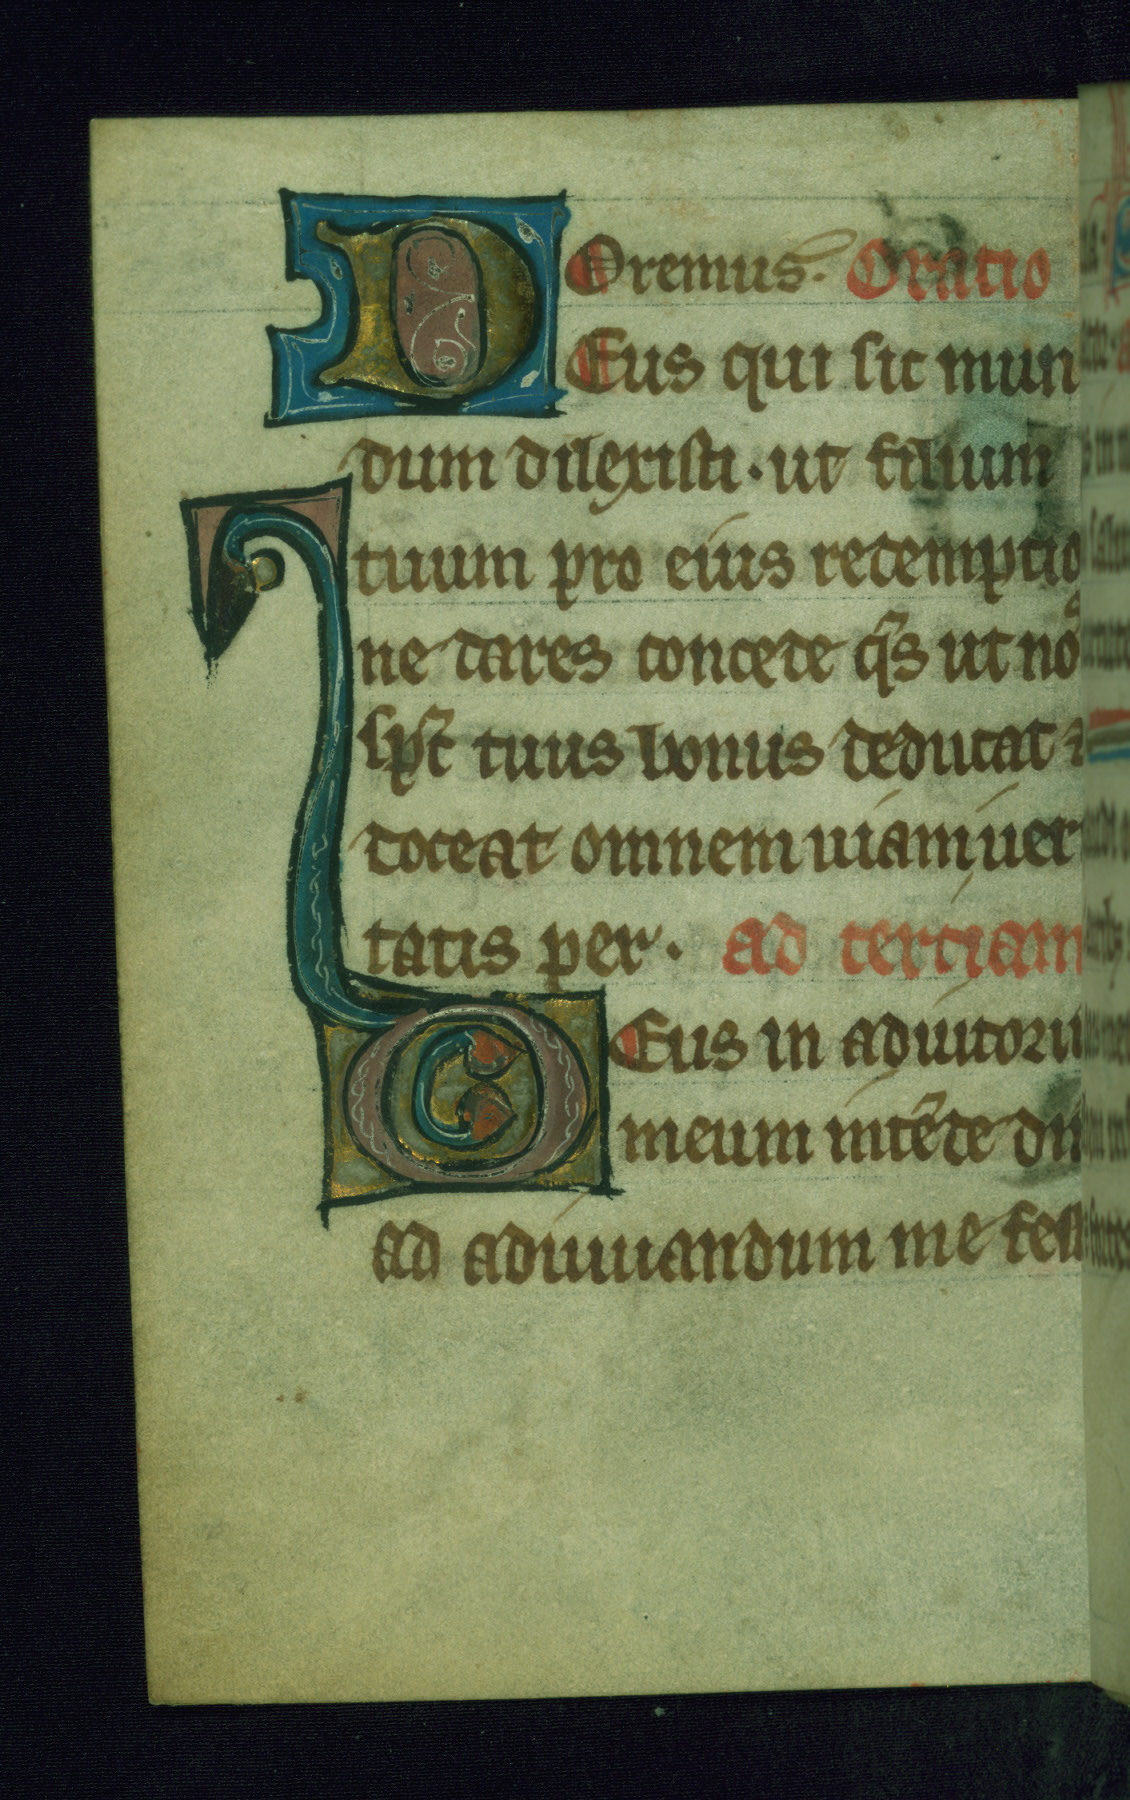 Oremus. Oratio
DEus qui sic mun
dum dilexisti · ut filium
tuum pro eius redemptio
ne dares concede q̄s ut nos
sp̄c tuus bonus deducat ⁊
doceat omnem uiam ueri
tatis per · ad tertiam
DEus in adiutoriu
meum intēde dn̄
ad adiuuandum me fest